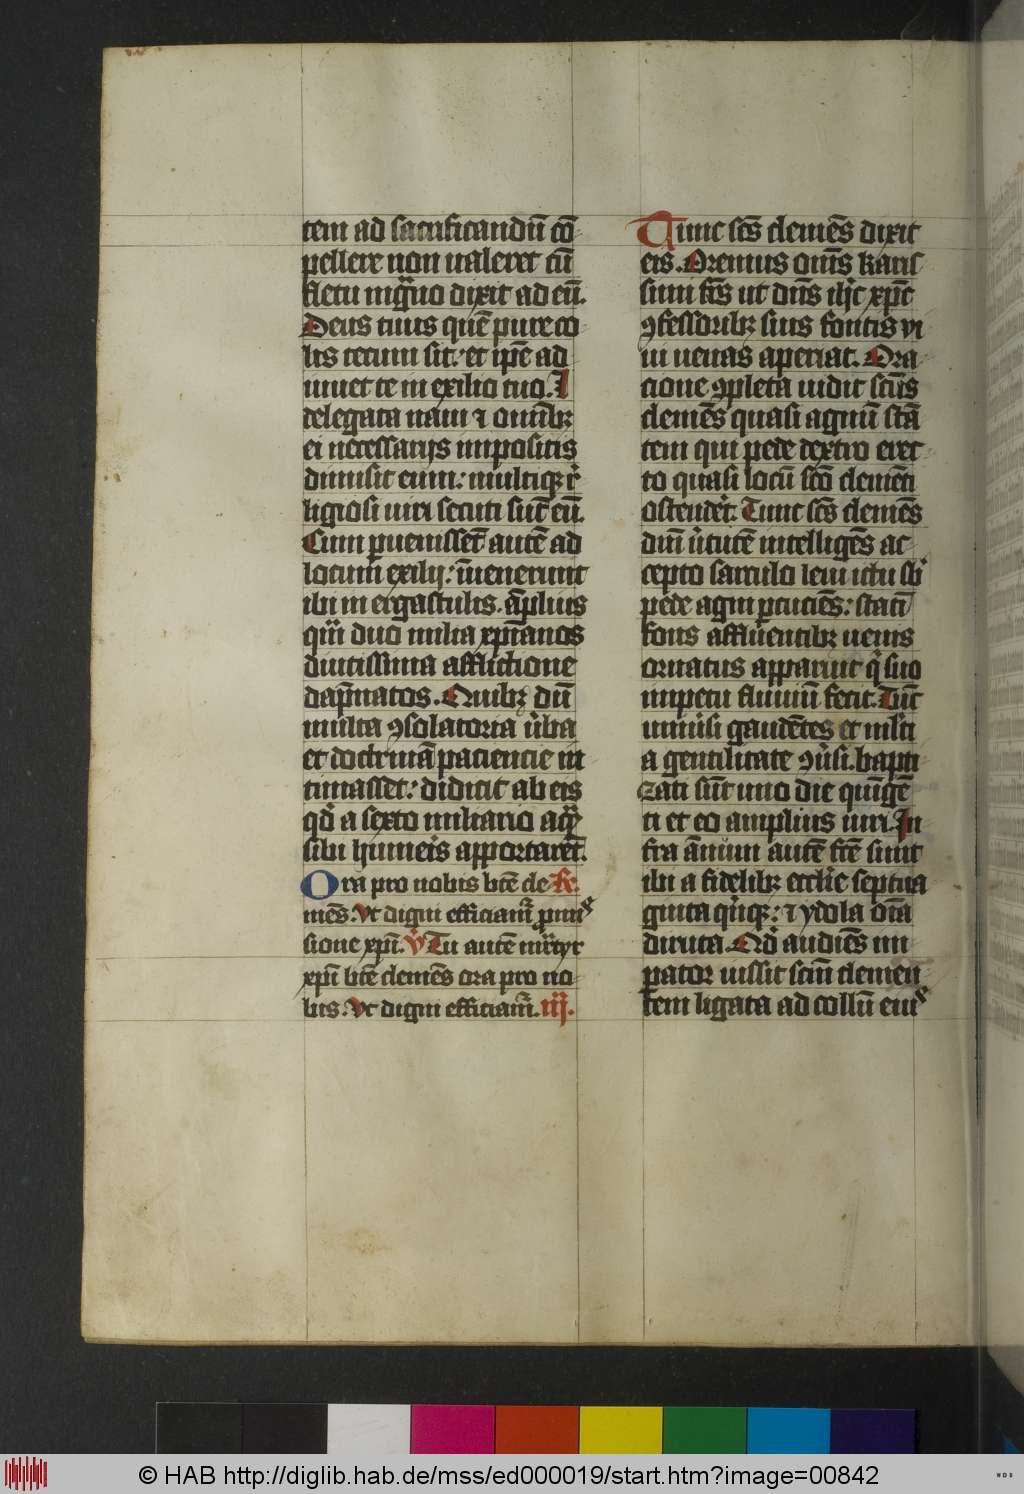 tem ad sacrificandū cō
pellere non valeret cū
fletu nīguo dixit ad eū.
Deus tuus quē pure co
lis tecum sit: et ip̄e ad
iuuet te in exilio tuo. I
delegata naui ⁊ omībꝫ
ei necessarijs impositis
dimisit eum: multiqꝫ re
ligiosi uiri secuti sūt eū.
Cum ꝑuenisset autē ad
locum exilij: īuenerunt
ibi in ergastulis. āplius
qm̄ duo milia xp̄ianos
diutissima afflictione
dāpnatos. Quibꝫ dū
multa ꝯsolatoria v̉ba
et doctrinā paciencie in
timasset: didicit ab eis
qd̓ a sexto miliario aq̄
sibi humeis apportaret̄.
Ora pro nobis bt̄e cle
mēs. Vt digni efficiam̄ ꝓmiꝰ
sione xp̄i. v̓ Tu autē m̄rtyr
xp̄i bt̄e clemēs ora pro no
bis. Vt digni efficiam̄. iij.
Tunc sc̄s clemēs dixit
eis. Oremus om̄s kariſ
simi fr̄s ut dn̄s ihc̄ xp̄c
ꝯfessoribꝫ suis fontis vi
ui uenas aperiat. Ora
cione ꝯpleta uidit sc̄us
clemēs quasi agnū stā
tem qui pede dextro erec
to quasi locū sc̄o clemēti
ostend̓et. Tunc sc̄s clemēs
diuī v̓tutē intelligēs ac
cepto sarculo leui ictu sb̓
pede agni ꝑcuciēs: statī
fons affluentibꝫ uenis
ornatus apparuit q̓ suo
impetu fluuiū fecit. Tūc
uniu̓si gaudētes et ml̓ti
a gentilitate ꝯu̓si. bapti
zati sūt uno die quīgē
ti et eo amplius uiri. In
fra ānum autē fc̄e sunt
ibi a fidelibꝫ eccl̓ie septua
ginta q̓nqꝫ: ⁊ ydola oīa
diruta. Qd̓ audiēs im
pator iussit scm̄ clemen
tem ligata ad collū eiuꝰ
© HAB http://diglib.hab.de/mss/ed000019/start.htm?image=00842